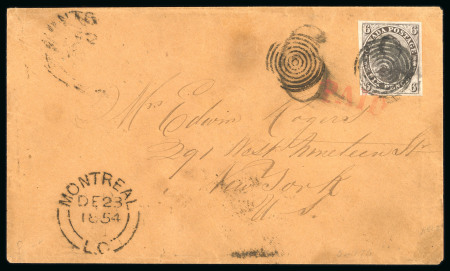 6 CANADA POSTAGE 6
PAID
Mrs Edwin Rogers
291 West Nineteen St
New York
U.S.
MONTREAL
DE 23
1854
L.C.